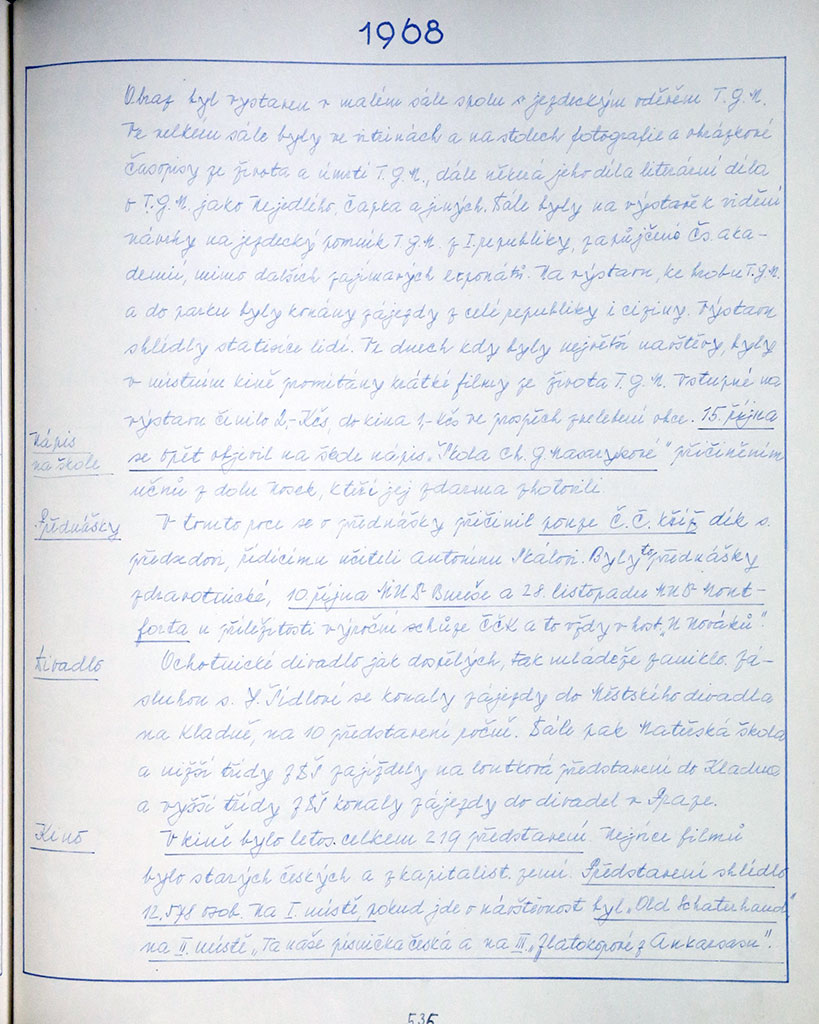 1968
Obraz byl vystaven v malém sále spolu s jezdeckým oděvem T.G.M.
Ve velkém sále byly ve vitrinách a na stolech fotografie a obrázkové
časopisy ze života a úmrtí T.G.M., dále některá jeho díla literární díla
o T.G.M. jako Nejedlého, Čapka a jiných. Dále byly na výstavě k vidění
návrhy na jezdecký pomník T.G.M. z I. republiky, zapůjčeno Čs. aka-
demií, mimo dalších zajímavých exponátů. Na výstavu, ke hrobu T.G.M.
a do parku byly konány zájezdy z celé republiky i ciziny. Výstavu
shlédly statisíce lidí. Ve dnech kdy byly největší navštěvy, byly
v místním kině promítány krátké filmy ze života T.G.M. Vstupné na
výstavu činilo 2,- Kčs, do kina 1,- Kčs ve prospěch zvelebení obce. 15. října
Nápis
na škole
se opět objevil na škole nápis „Škola Ch. G. Masarykové" přičiněním
učnů z dolu Nosek, kteří jej zdarma zhotovili
Přednášky
V tomto roce se o přednášky přičinil pouze Č.Č. kříž dík s.
předsedovi, řídícímu učiteli Antonínu Skálovi. Byly to přednášky
zdravotnické, 10 října MUDr Bureše a 28. listopadu MUDr Mont-
forta u příležitosti výroční schůze ČČK a to vždy v host. „U Nováků".
Divadlo
Ochotnické divadlo jak dospělých, tak mládeže zaniklo. Zá-
sluhou s. Šídlové se konaly zájezdy do Městského divadla
na Kladně, na 10 představení ročně. Dále pak Mateřská škola
a nižší třídy ZDŠ zajížděly na loutková představení do Kladna
a vyšší třídy ZDŠ konaly zájezdy do divadel v Praze.
Kino
V kině bylo letos celkem 219 představení. Nejvíce filmů
bylo starých českých a z kapitalist. zemí. Představení shlédlo
12.578 osob. Na I. místě, pokud jde o návštěvnost byl „Old Schaterhand",
na II. místě „Ta naše písnička česká a na III. „Zlatokopové z Arkansasu".
535